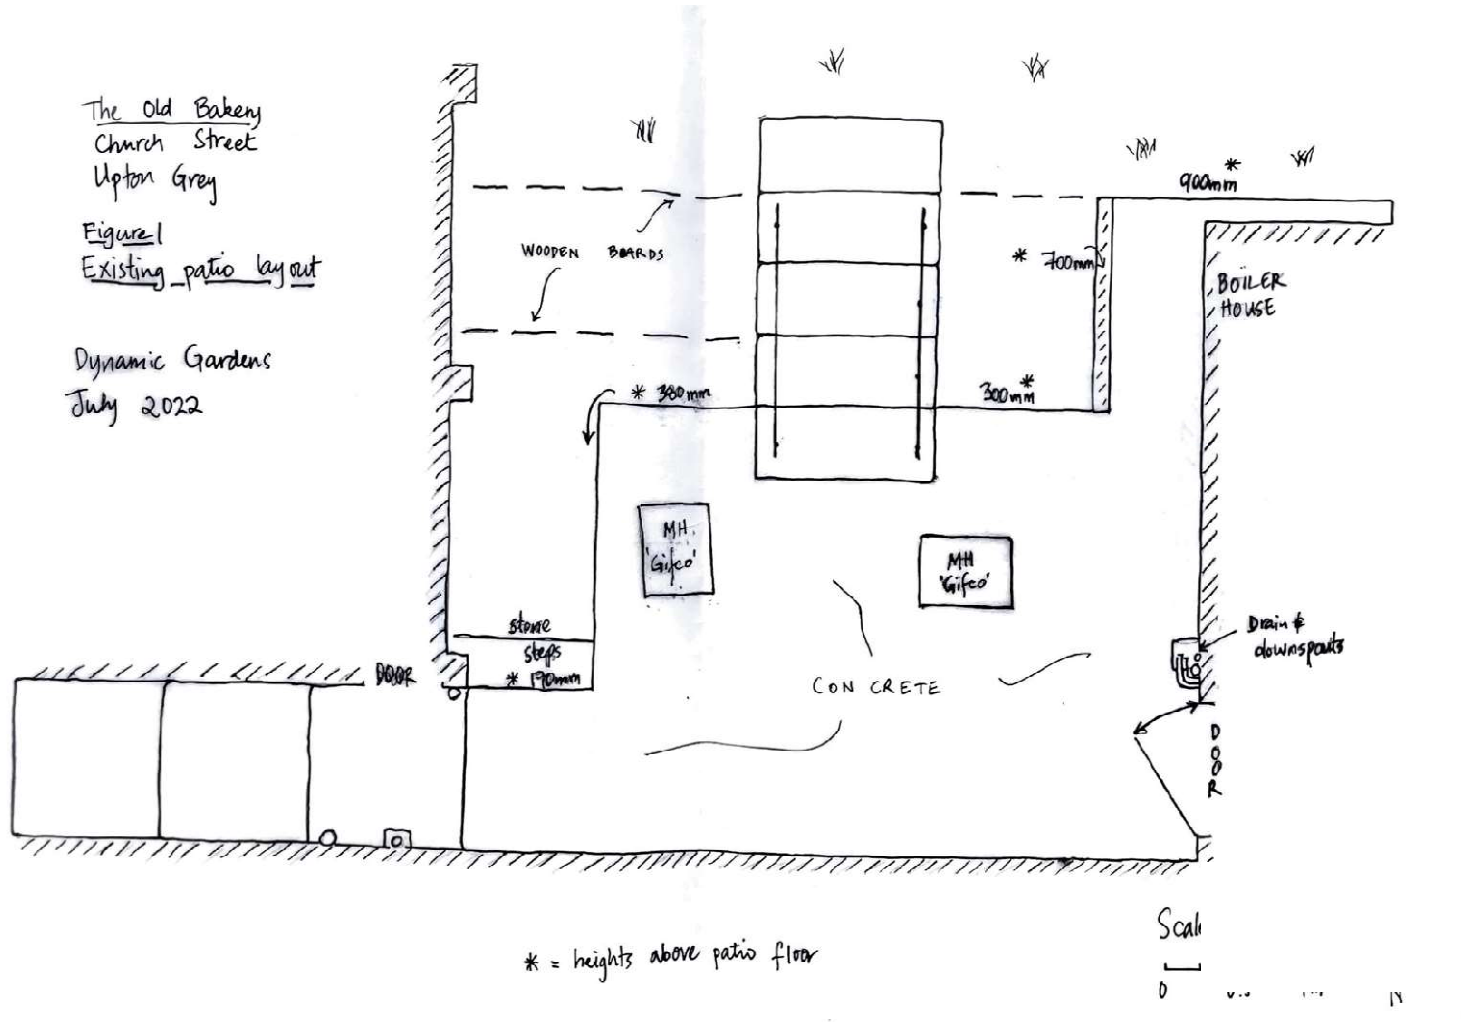 The Old Bakery
Church Street
Upton Grey
Figure 1
Existing patio layout
Dynamic Gardens
July 2022
* 900mm
WOODEN BOARDS
* 700mm
BOILER
HOUSE
* 380mm
300mm *
MH
'Gifco'
MH
'Gifco'
stone
steps
* 190mm
DOOR
Drain &
downspouts
CONCRETE
DOOR
* = heights above patio floor
0